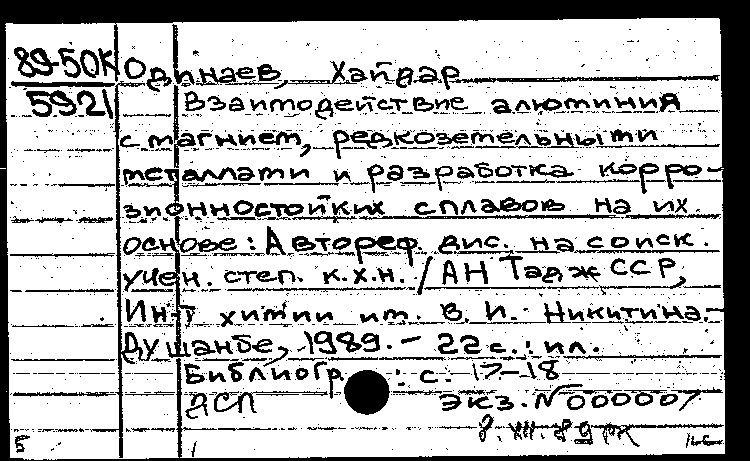 89-50К
5921
Одинаев, Хайдар
Взаимодействие алюминия
с магнием, редкоземельными
металлами и разработка корро-
зионностойких сплавов на их
основе : Автореф. дис. на соиск.
учен. степ. к.х.н. / АН Тадж ССР,
Ин-т химии им. В. И. Никитина.-
Душанбе, 1989. - 22 с. : ил.
Библиогр. : с. 17-18
ДСП экз. № 000007
8. XII. 89
5